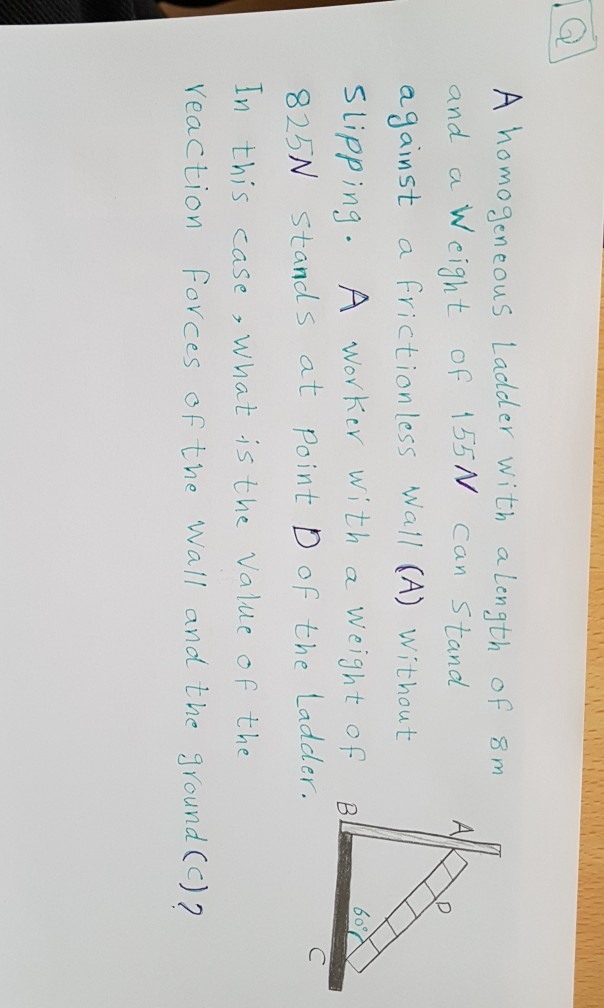 Q
A homogeneous Ladder with a length of 8m
and a Weight of 155N can stand
against a frictionless wall (A) without
slipping. A worker with a weight of
825N stands at point D of the Ladder.
In this case, what is the value of the
reaction forces of the wall and the ground (C)?
A
D
B
60°
C